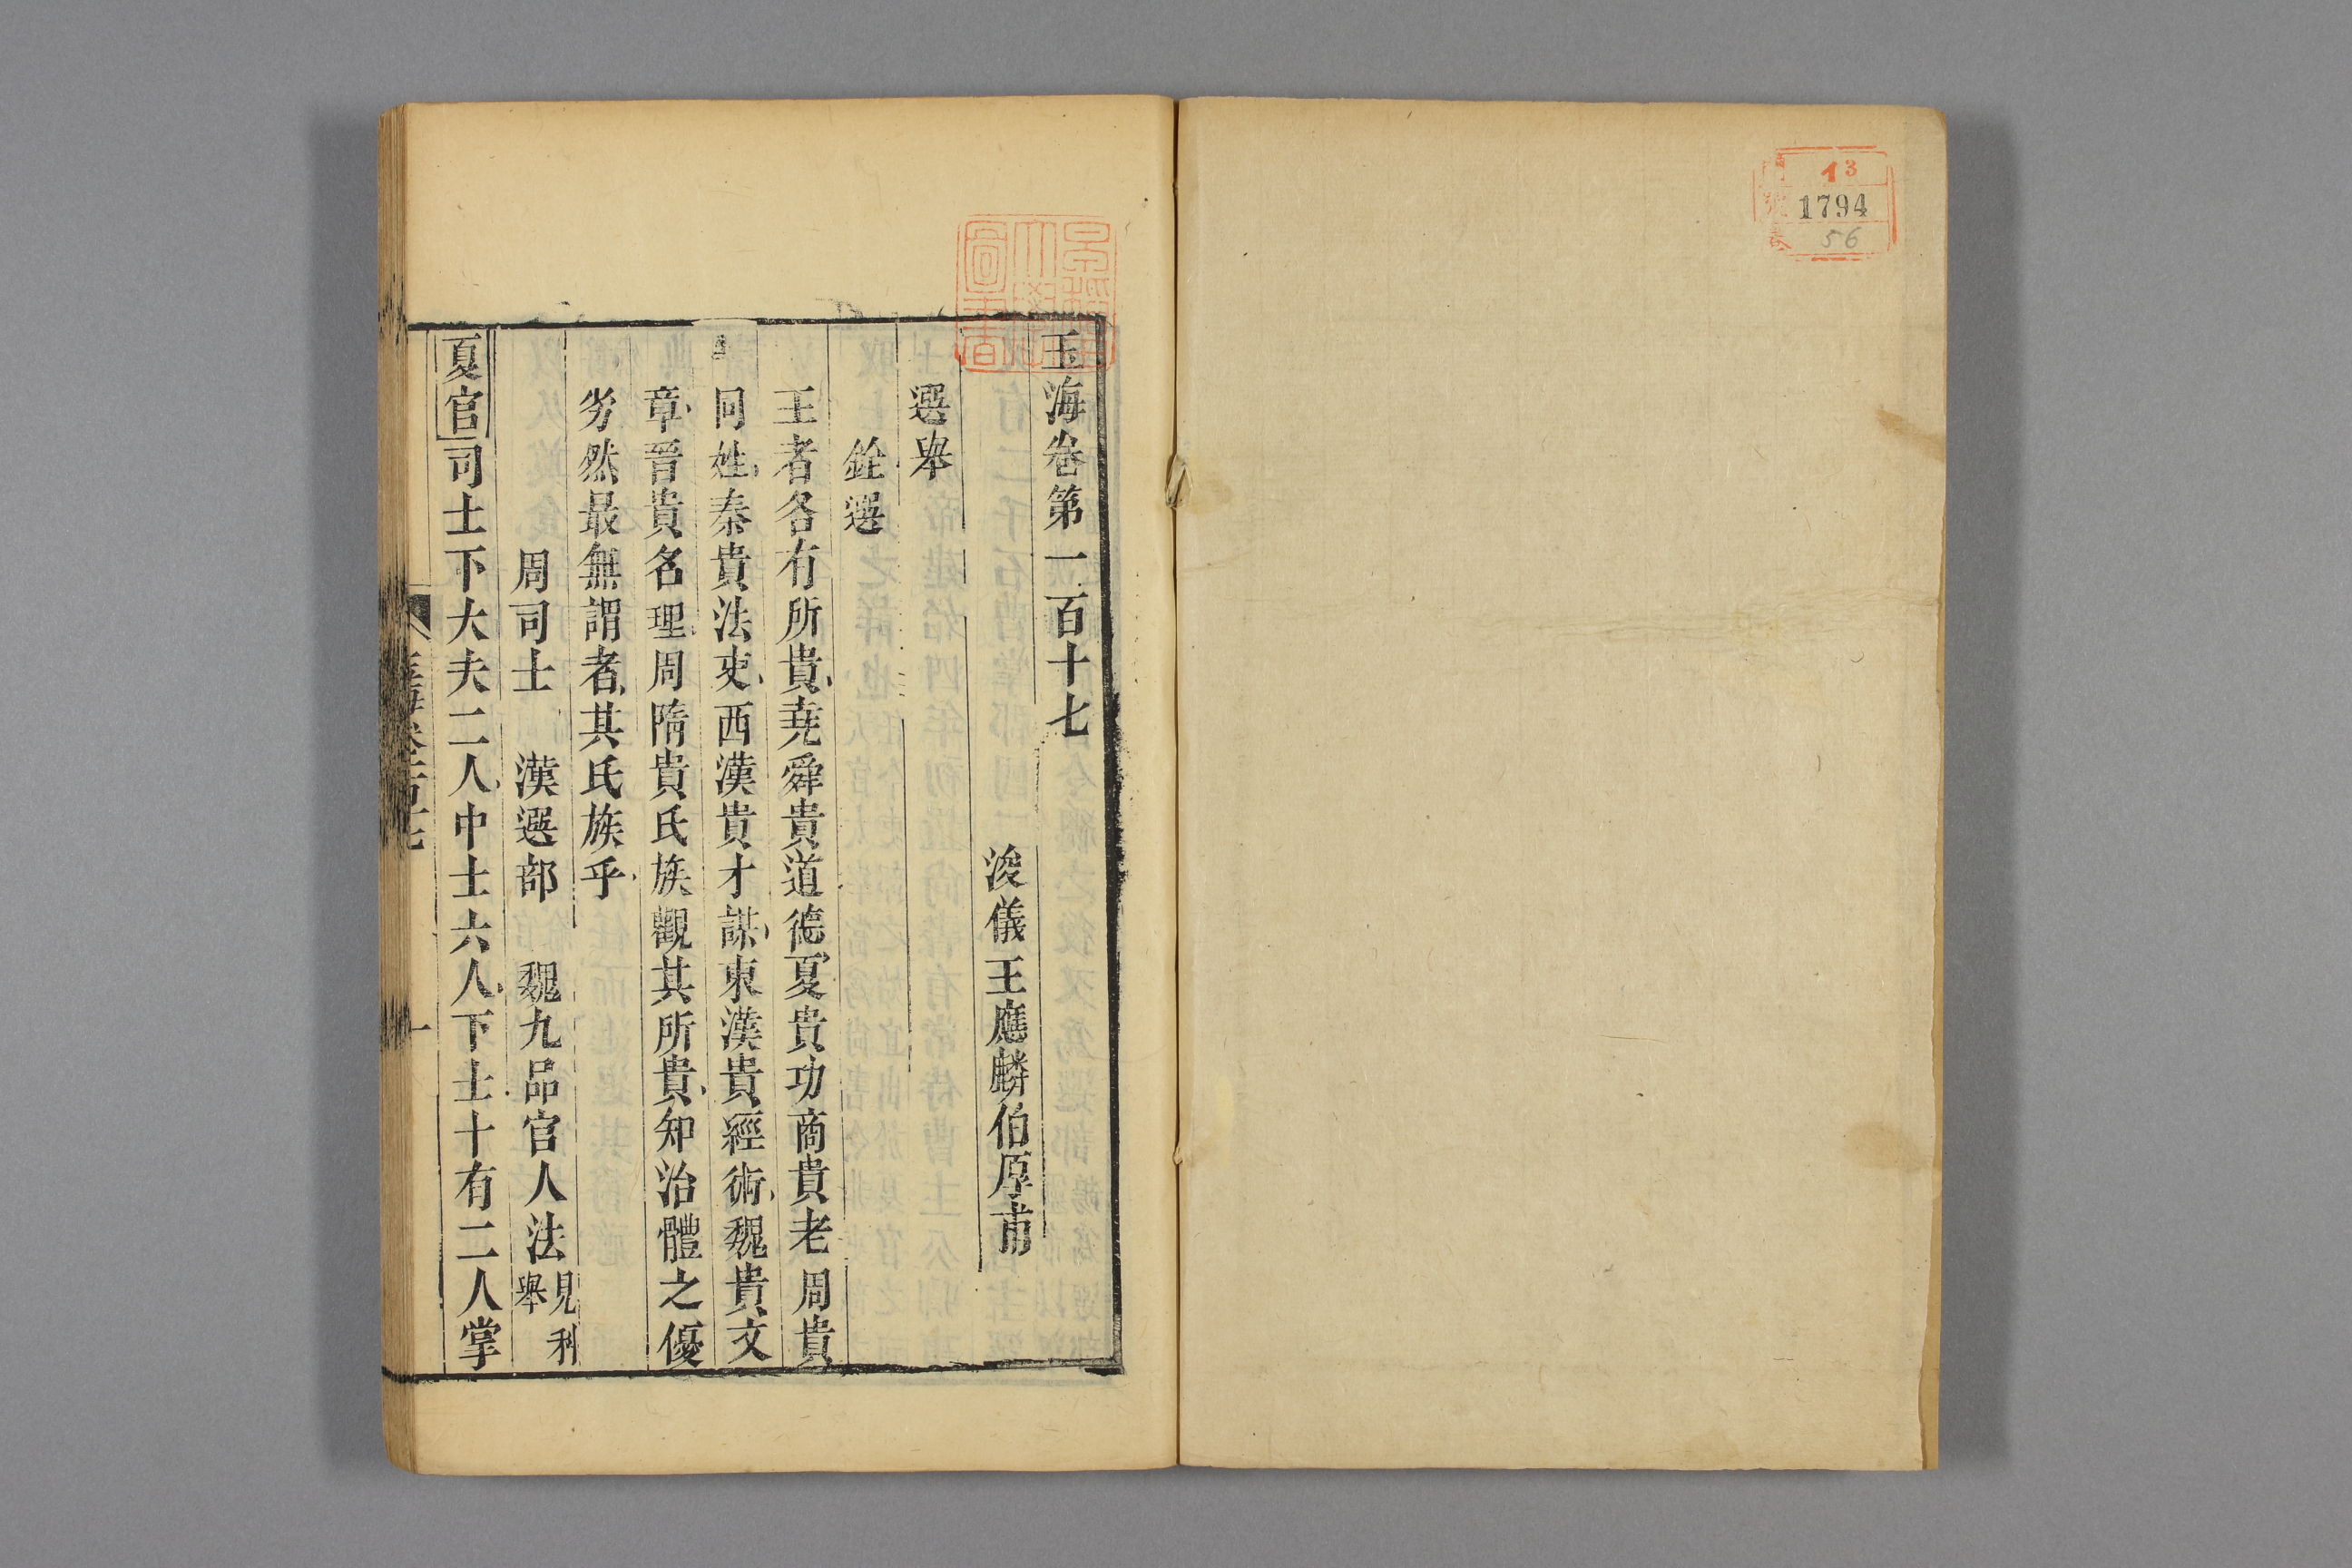 13
1794
56
玉海卷第一百十七
浚儀王應麟伯厚甫
選舉
銓選
王者各有所貴堯舜貴道德夏貴功商貴老周貴
同姓秦貴法吏西漢貴才謀東漢貴經術魏貴文
章晉貴名理周隋貴氏族觀其所貴知治體之優
劣然最無謂者其氏族乎
周司士 漢選部 魏九品官人法見科舉
夏官司士下大夫二人中士六人下士十有二人掌